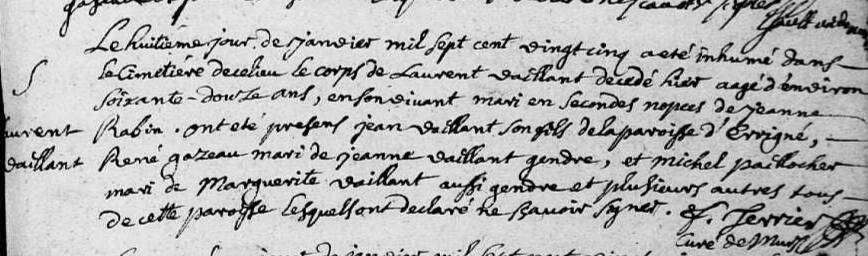 Le huitiéme jour de janvier mil sept cent vingt cinq a eté inhumé dans
le Cimetiére de ce lieu le corps de Laurent Vaillant decedé hier aagé d'environ
S
soixante-douze ans, en son vivant mari en secondes nopces de jeanne
Laurent
Rabin. ont eté presens jean Vaillant son fils de la paroisse d'Errigné,
Vaillant
René gazeau mari de jeanne Vaillant gendre, et michel paillocher
mari de Marguerite Vaillant aussi gendre et plusieurs autres tous
de cette paroisse lesquels ont declaré ne sçavoir signer. f. Terrier
Curé de Murs
de janvier mil sept cent